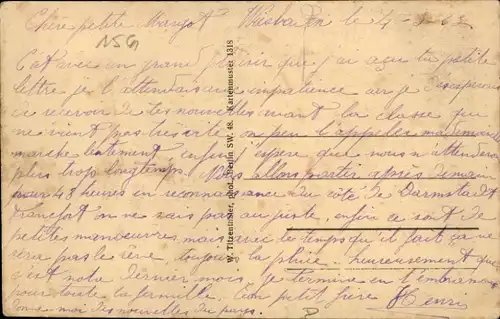 Chère petite Margot Wiesbaden le 4
NSG
C'est avec un grand plaisir que j'ai reçu ta petite
lettre je l'attendais avec impatience car je désespérais
de recevoir de tes nouvelles avant la classe qui
ne vient pas très vite on peu l'appeler mademoiselle
marche lentement enfin j'espère que nous n'attendrons
plus trop longtemps. Nous allons partir après demain
pour 48 heures en reconnaissance du côté de Darmstadt
Francfort on ne sais pas au juste, enfin ce sont de
petites manoeuvres mais avec le temps qu'il fait ça ne
sera pas le rêve, toujours la pluie. heureusement que
c'est notre dernier mois je termine en t'embrassant
pour toute la famille. Ton petit frère Henri
donne moi des nouvelles du pays.
W. Titzenthaler, phot. Berlin SW. 48. Kartenmuster 1318